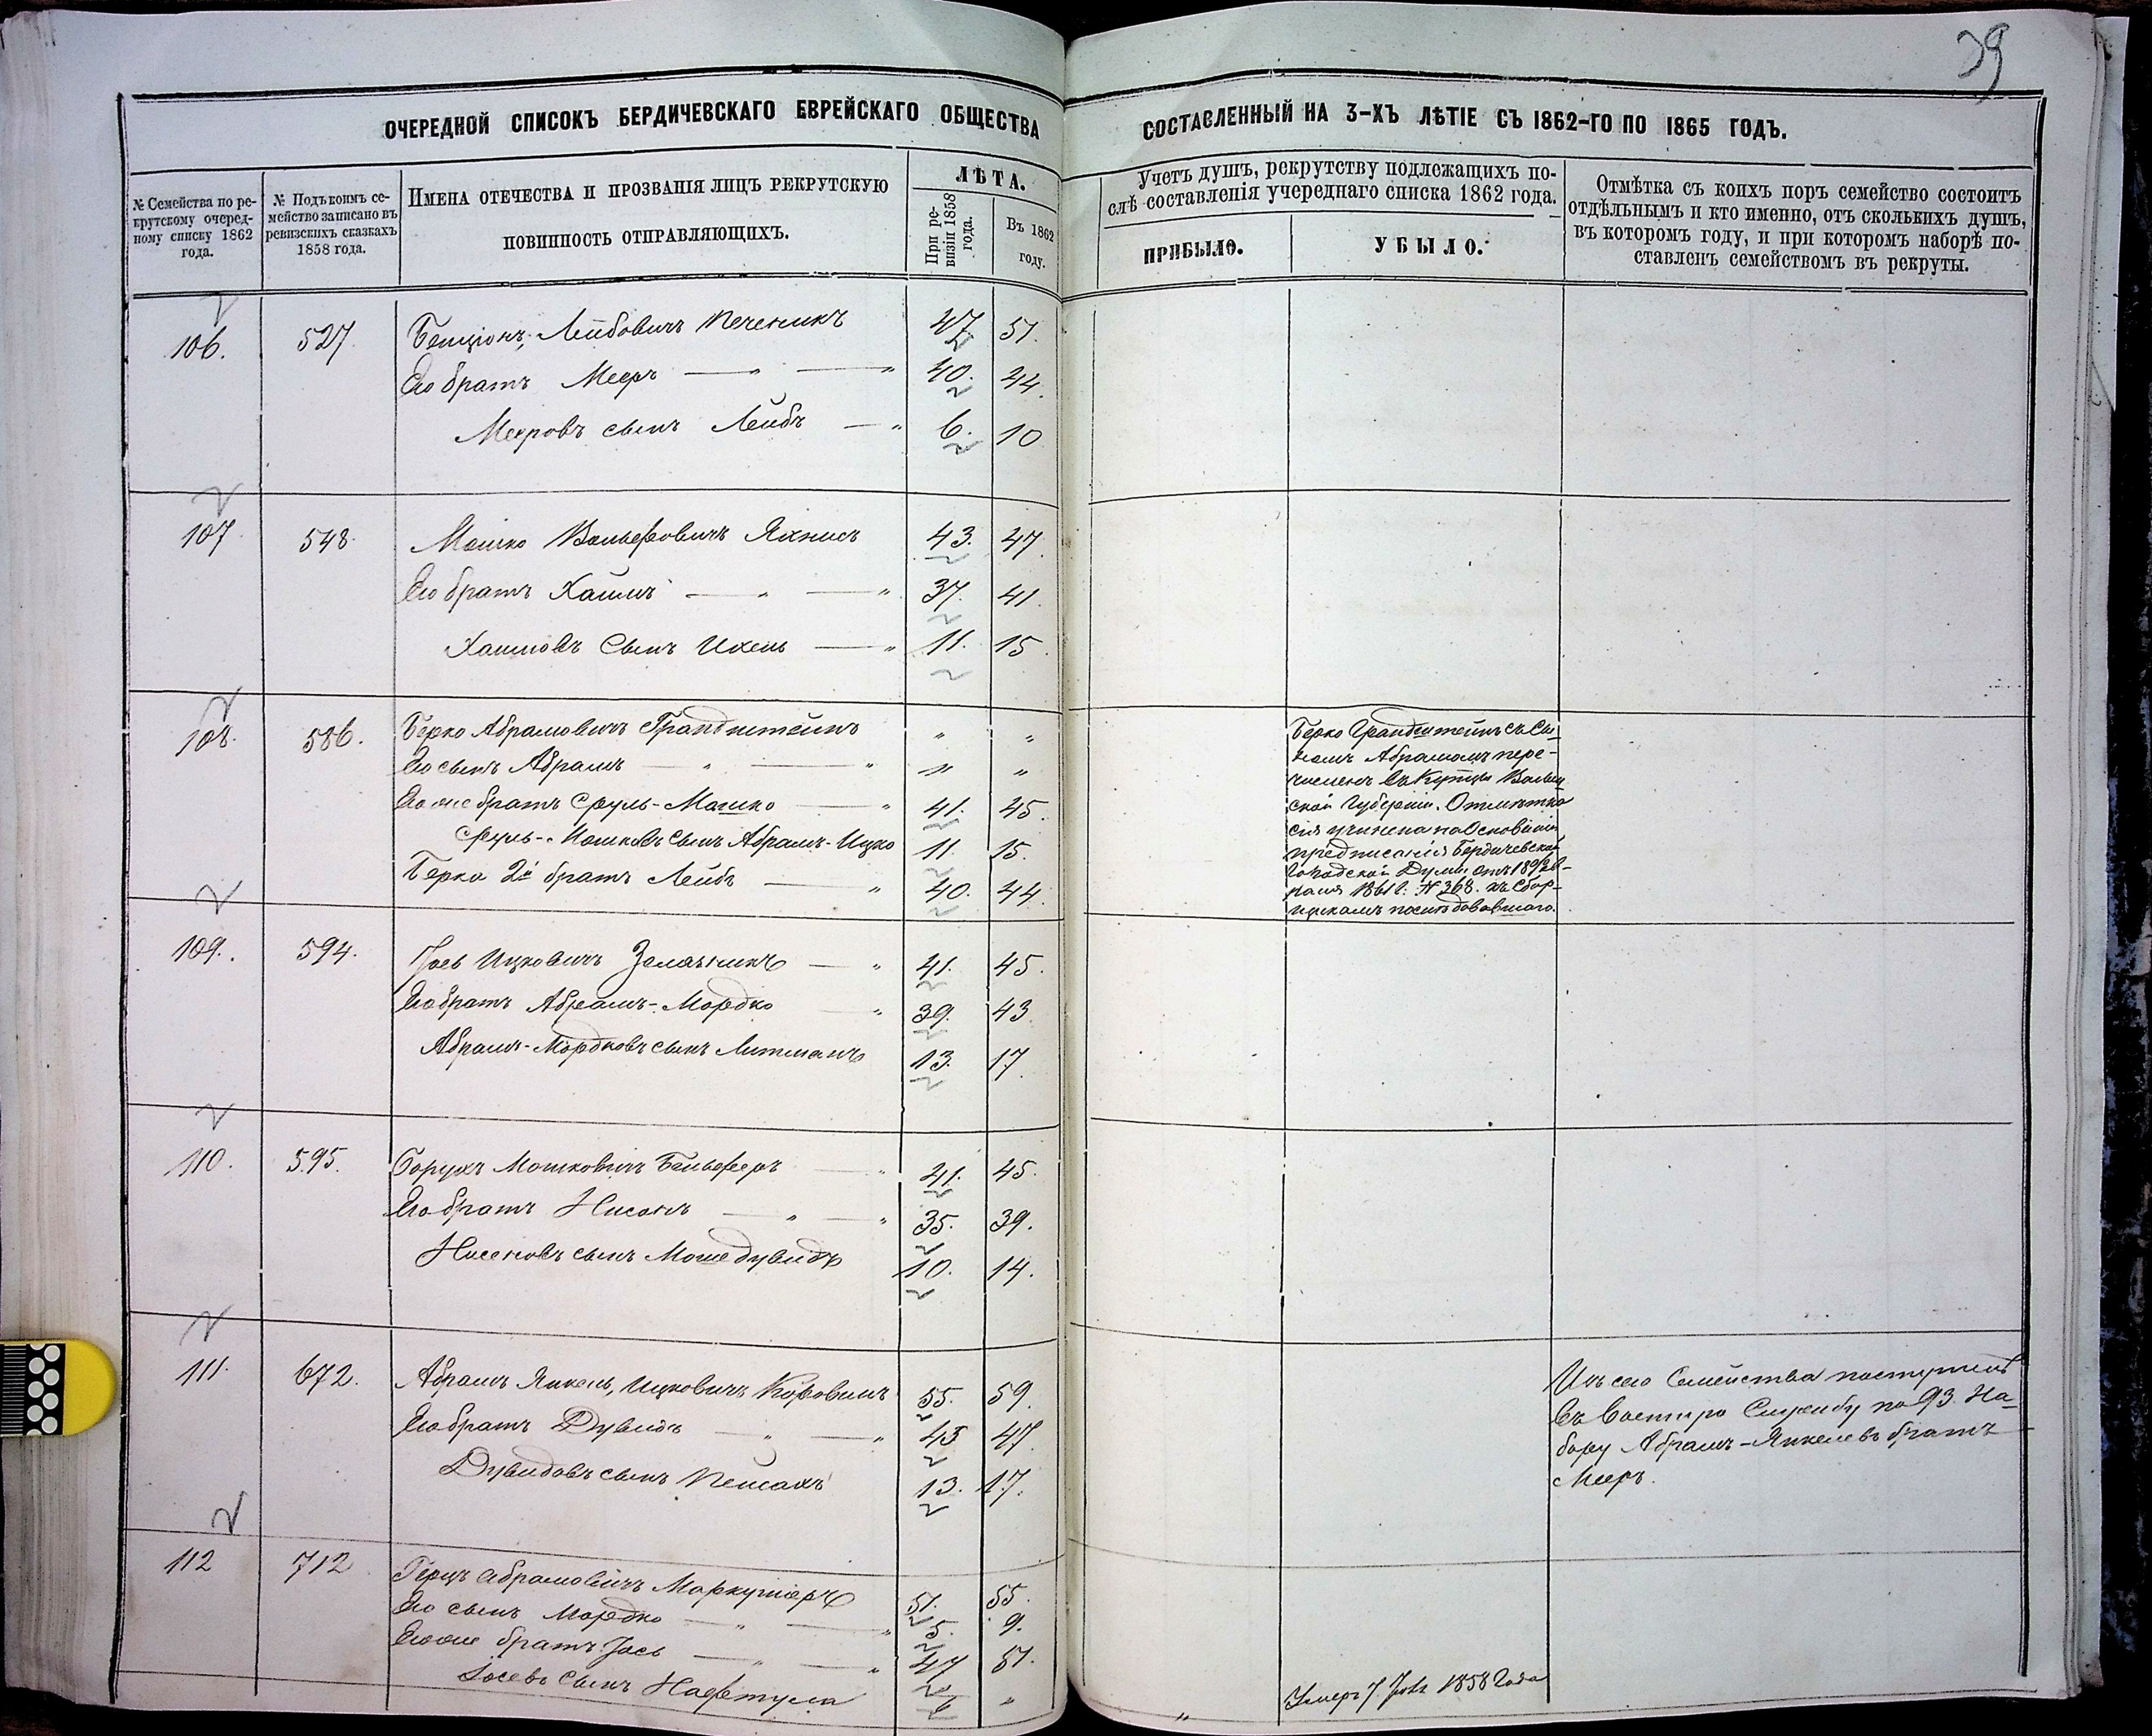 39
ОЧЕРЕДНОЙ СПИСОКЪ БЕРДИЧЕВСКАГО ЕВРЕЙСКАГО ОБЩЕСТВА
СОСТАВЛЕННЫЙ НА 3-ХЪ ЛѢТІЕ СЪ 1862-ГО ПО 1865 ГОДЪ.
№ Семейства по ре-
крутскому очеред-
ному списку 1862
года.
№ Подъ коимъ се-
мейство записано въ
ревизскихъ сказкахъ
1858 года.
ИМЕНА ОТЕЧЕСТВА И ПРОЗВАНІЯ ЛИЦЪ РЕКРУТСКУЮ
ПОВИННОСТЬ ОТПРАВЛЯЮЩИХЪ.
ЛѢТА.
При ре-
визіи 1858
года.
Въ 1862
году.
Учетъ душъ, рекрутству подлежащихъ по-
слѣ составленія учереднаго списка 1862 года.
ПРИБЫЛО.
УБЫЛО.
Отмѣтка съ коихъ поръ семейство состоитъ
отдѣльнымъ и кто именно, отъ сколькихъ душъ,
въ котором году, и при котором наборѣ по-
ставленъ семейством въ рекруты.
106. 527. Бенціонъ, Лейбовичъ Печеникъ 47 51.
Его братъ Мееръ — " — " 40. 44.
Мееровъ сынъ Лейбъ — " 6. 10
107. 548. Мошко Вольфовичъ Яхнисъ 43. 47.
Его братъ Хаимъ — " — " 37. 41.
Хаимовъ Сынъ Ихель — " 11. 15.
108. 586. Берко Абрамовичъ Грандштейнъ " "
Его сынъ Абрамъ — " — " " "
Его же братъ Сруль-Мошко — " 41. 45.
Сруль-Мошковъ сынъ Абрамъ-Ицко 11. 15.
Берка 2й братъ Лейбъ — " 40. 44.
Берко Грандштейнъ съ Сы-
номъ Абрамомъ пере-
численъ въ Купцы Волын
ской Губерніи. Отмѣтка
сія учинена на Основаніи
предписанія Бердичевской
Городской Думы отъ
1861 г. № 368. къ Сбор-
щикамъ послѣдовавшаго.
109. 594. Іось Ицковичъ — " 41. 45.
Его братъ Абрамъ-Мордко " 39. 43
Абрамъ-Мордковъ сынъ Литманъ 13. 17.
110. 595. Борухъ Мошковичъ — " 41. 45.
Его братъ Нисонъ — " — " 35. 39.
Нисоновъ сынъ Моше Дувидъ 10. 14.
111. 672. Абрамъ Янкель, Ицковичъ Коровинъ 55. 59.
Его братъ Дувидъ — " — " 43 47.
Дувидовъ сынъ Пейсахъ 13. 17.
Изъ сего Семейства поступилъ
въ Военную Службу по 93. На-
бору Абрамъ-Янкелевъ братъ
Мееръ.
112 712. Герцъ Абрамовичъ 51. 55.
Его сынъ Мордко — " — " 5. 9.
Его же братъ Іось — " — " 47 51.
Іосевъ Сынъ Нафтула 6 "
" Умеръ 7. 1858 Года